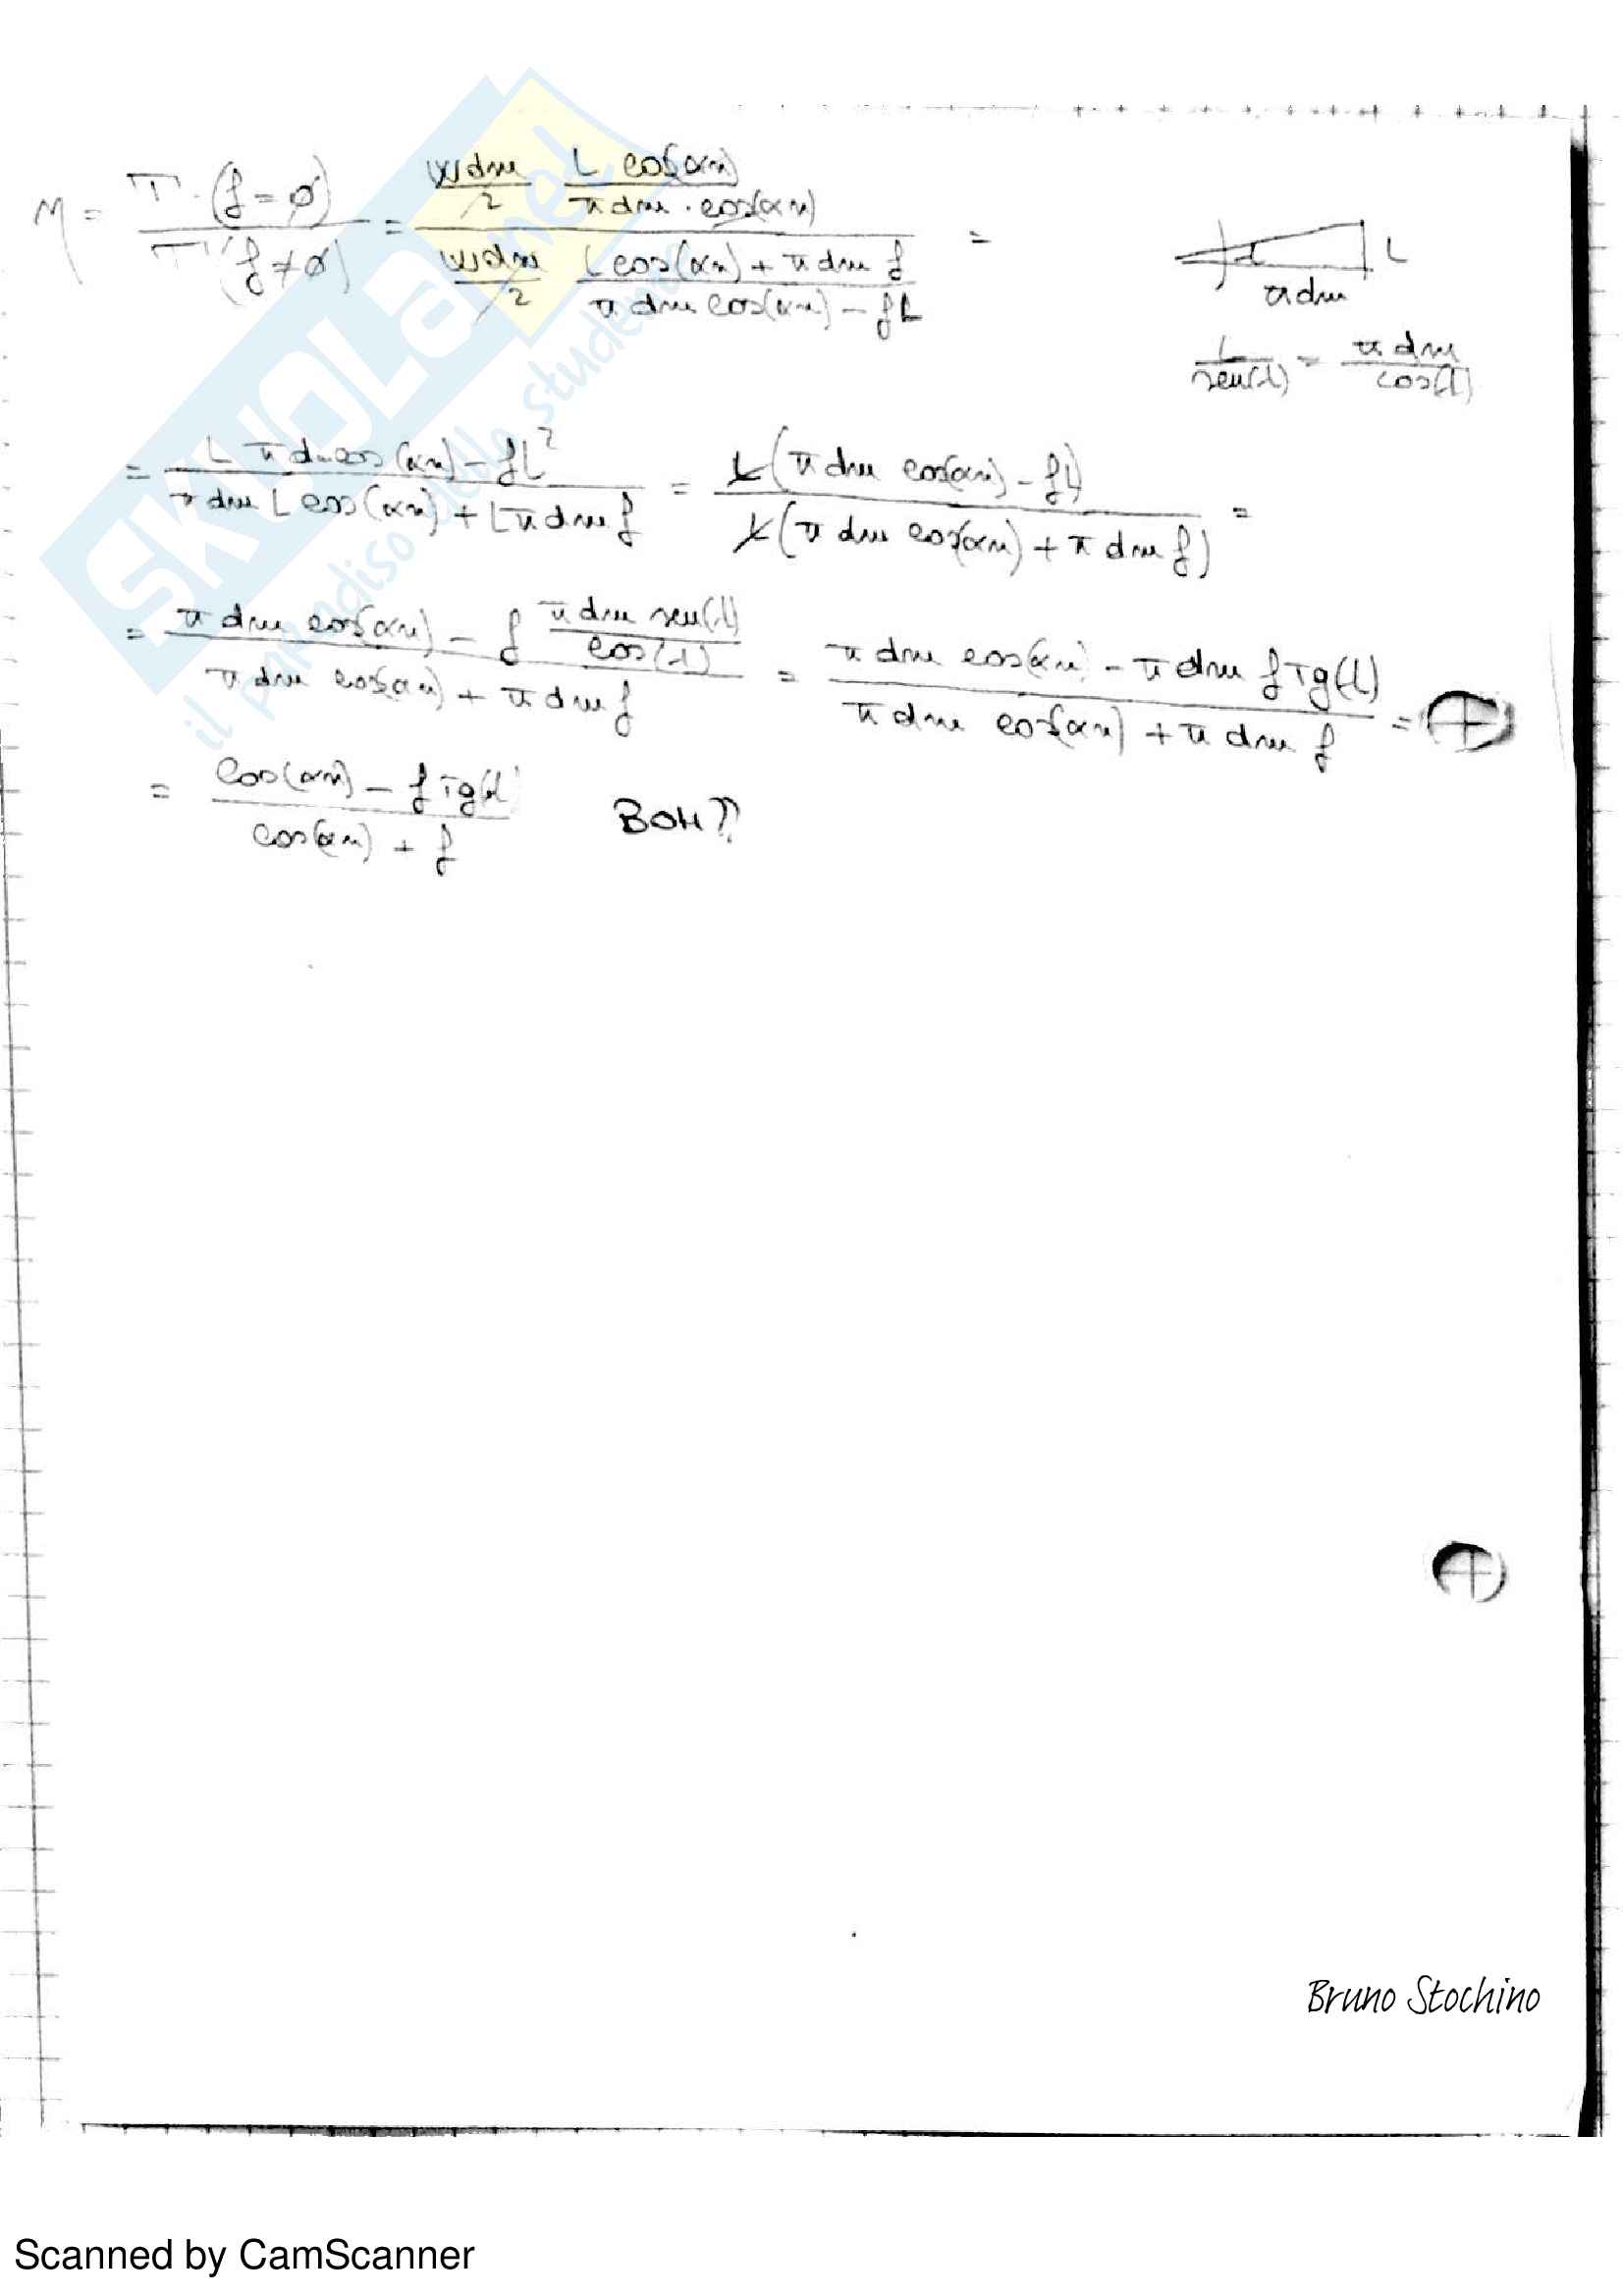 η = T (f=∅) / T (f≠∅) = (W dm / 2 · L cos(αn) / π dm · cos(αn)) / (W dm / 2 · L cos(αn) + π dm f / π dm cos(αn) − f L) =
λ L
π dm
L / sen(λ) = π dm / cos(λ)
= L π dm cos(αn) − f L² / π dm L cos(αn) + L π dm f = L (π dm cos(αn) − f L) / L (π dm cos(αn) + π dm f) =
= π dm cos(αn) − f π dm sen(λ) / cos(λ) / π dm cos(αn) + π dm f = π dm cos(αn) − π dm f Tg(λ) / π dm cos(αn) + π dm f =
= cos(αn) − f Tg(λ) / cos(αn) + f BOH??
SKUOLA.net
il paradiso dello studente
Bruno Stochino
Scanned by CamScanner